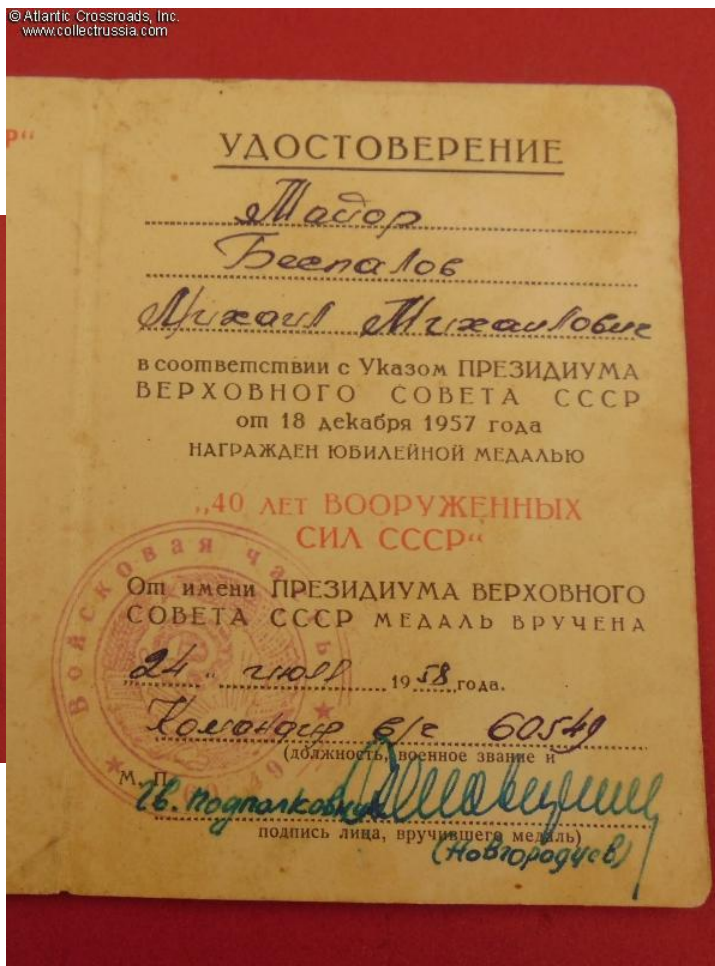 © Atlantic Crossroads, Inc.
www.collectrussia.com
Р"
УДОСТОВЕРЕНИЕ
Майор
Беспалов
Михаил Михайлович
в соответствии с Указом ПРЕЗИДИУМА
ВЕРХОВНОГО СОВЕТА СССР
от 18 декабря 1957 года
НАГРАЖДЕН ЮБИЛЕЙНОЙ МЕДАЛЬЮ
„40 лет ВООРУЖЕННЫХ
СИЛ СССР“
От имени ПРЕЗИДИУМА ВЕРХОВНОГО
СОВЕТА СССР МЕДАЛЬ ВРУЧЕНА
„24“ июля 1958 года.
Командир в/ч 60549
(должность, военное звание и
М. П.
Гв. подполковник
подпись лица, вручившего медаль)
(Новгородцев)
Войсковая часть